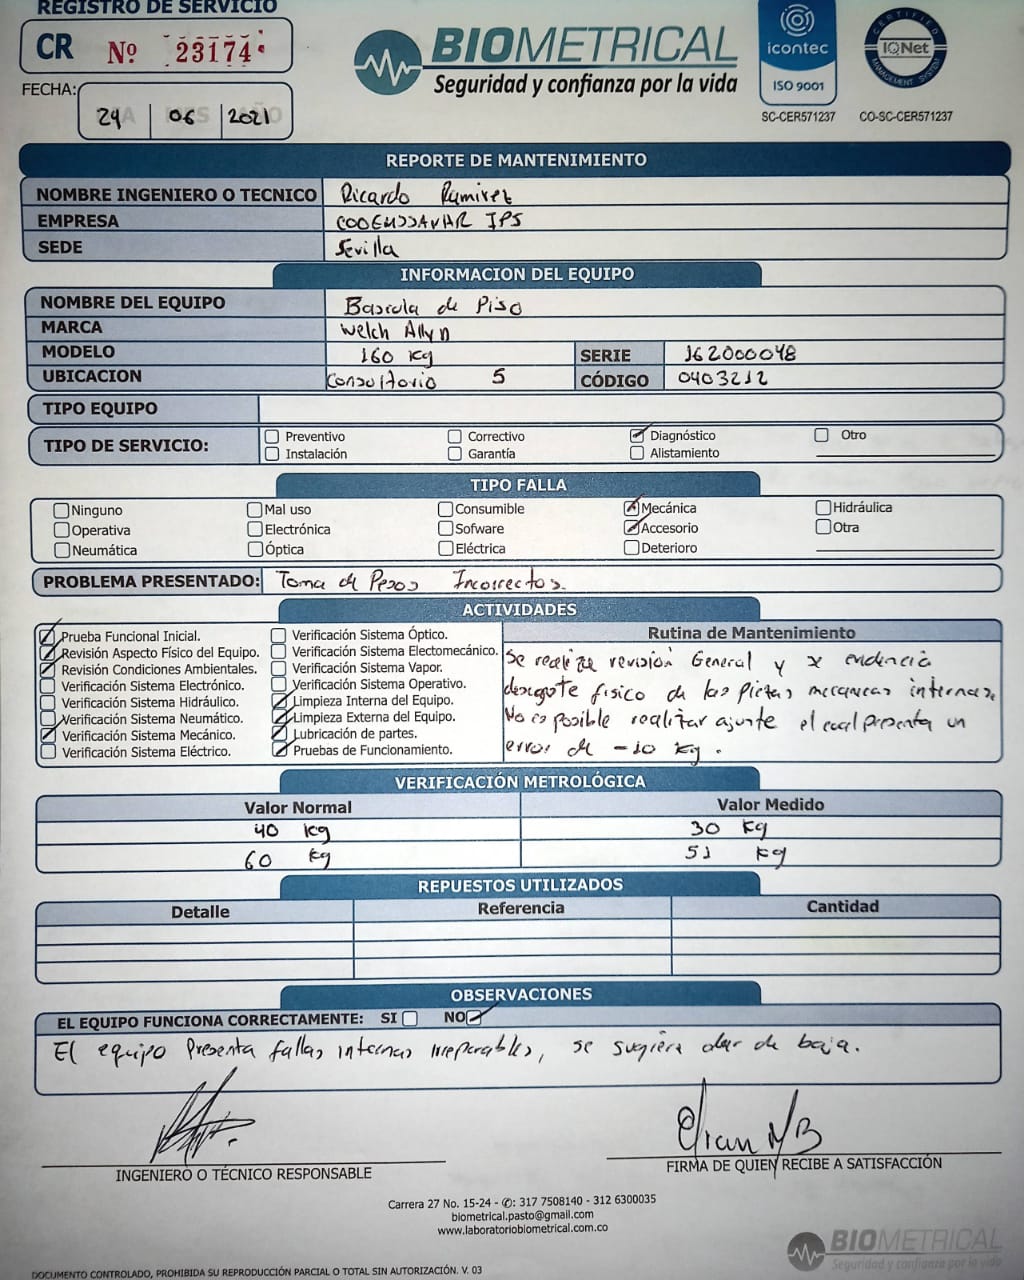 REGISTRO DE SERVICIO
CR Nº 23174
icontec
ISO 9001
SC-CER571237
CERTIFIED
IQNet
MANAGEMENT SYSTEM
CO-SC-CER571237
BIOMETRICAL
Seguridad y confianza por la vida
FECHA: 24 06 2021
REPORTE DE MANTENIMIENTO
NOMBRE INGENIERO O TECNICO Ricardo Ramirez
EMPRESA CODEMSSANAR IPS
SEDE Sevilla
INFORMACION DEL EQUIPO
NOMBRE DEL EQUIPO Bascula de Piso
MARCA Welch Allyn
MODELO 160 Kg SERIE 162000048
UBICACION Consultorio 5 CÓDIGO 0403212
TIPO EQUIPO
TIPO DE SERVICIO:
Preventivo Correctivo Diagnóstico Otro
Instalación Garantía Alistamiento
TIPO FALLA
Ninguno Mal uso Consumible Mecánica Hidráulica
Operativa Electrónica Sofware Accesorio Otra
Neumática Óptica Eléctrica Deterioro
PROBLEMA PRESENTADO: Toma de Pesos Incorrectos.
ACTIVIDADES
Prueba Funcional Inicial.
Revisión Aspecto Físico del Equipo.
Revisión Condiciones Ambientales.
Verificación Sistema Electrónico.
Verificación Sistema Hidráulico.
Verificación Sistema Neumático.
Verificación Sistema Mecánico.
Verificación Sistema Eléctrico.
Verificación Sistema Óptico.
Verificación Sistema Electomecánico.
Verificación Sistema Vapor.
Verificación Sistema Operativo.
Limpieza Interna del Equipo.
Limpieza Externa del Equipo.
Lubricación de partes.
Pruebas de Funcionamiento.
Rutina de Mantenimiento
Se realiza revisión General y se evidencia
desgaste fisico de las piezas mecanicas internas.
No es posible realizar ajuste el cual presenta un
error de -10 Kg.
VERIFICACIÓN METROLÓGICA
Valor Normal Valor Medido
40 kg 30 kg
60 kg 51 kg
REPUESTOS UTILIZADOS
Detalle Referencia Cantidad
OBSERVACIONES
EL EQUIPO FUNCIONA CORRECTAMENTE: SI NO
El equipo Presenta fallas internas irreparables, se sugiera dar de baja.
INGENIERO O TÉCNICO RESPONSABLE
FIRMA DE QUIEN RECIBE A SATISFACCIÓN
Carrera 27 No. 15-24 - ✆: 317 7508140 - 312 6300035
biometrical.pasto@gmail.com
www.laboratoriobiometrical.com.co
BIOMETRICAL
Seguridad y confianza por la vida
DOCUMENTO CONTROLADO, PROHIBIDA SU REPRODUCCIÓN PARCIAL O TOTAL SIN AUTORIZACIÓN. V. 03